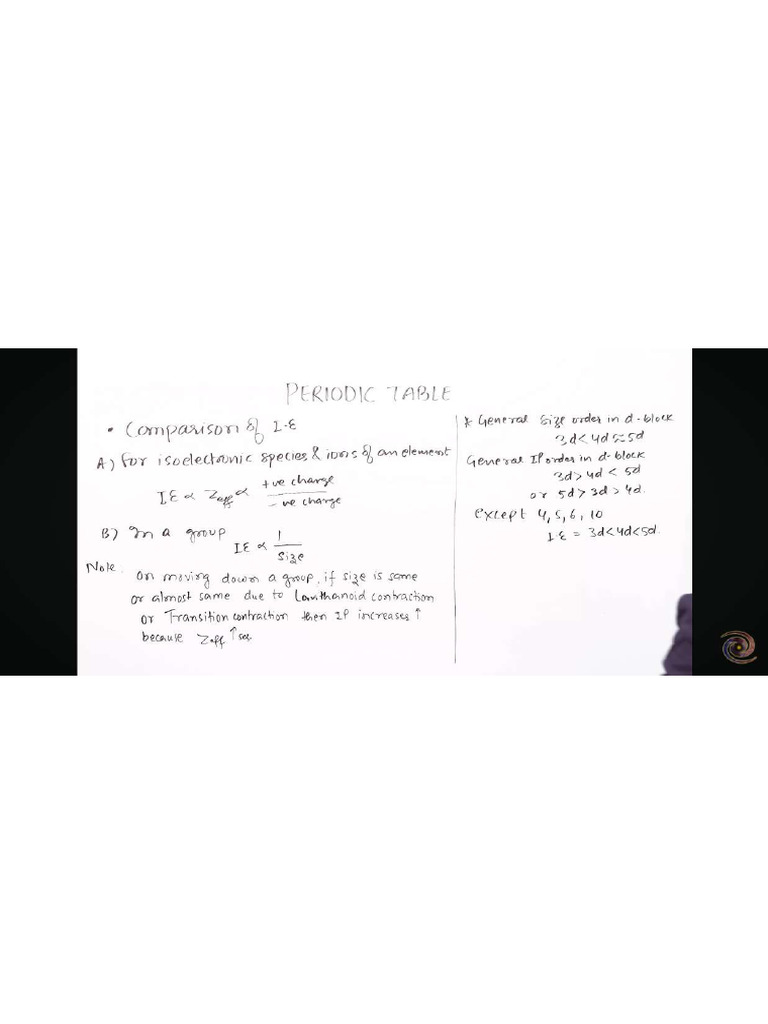 PERIODIC TABLE
• Comparison of I.E
A) For isoelectronic species & ions of an element
IE ∝ Zeff ∝ +ve charge / -ve charge
B) In a group IE ∝ 1 / size
Note.
on moving down a group, if size is same
or almost same due to Lanthanoid contraction
or Transition contraction then IP increases ↑
because Zeff ↑ses.
* General size order in d-block
3d < 4d ≈ 5d
General IP order in d-block
3d > 4d < 5d
or 5d > 3d > 4d.
except 4, 5, 6, 10
I.E = 3d < 4d < 5d.